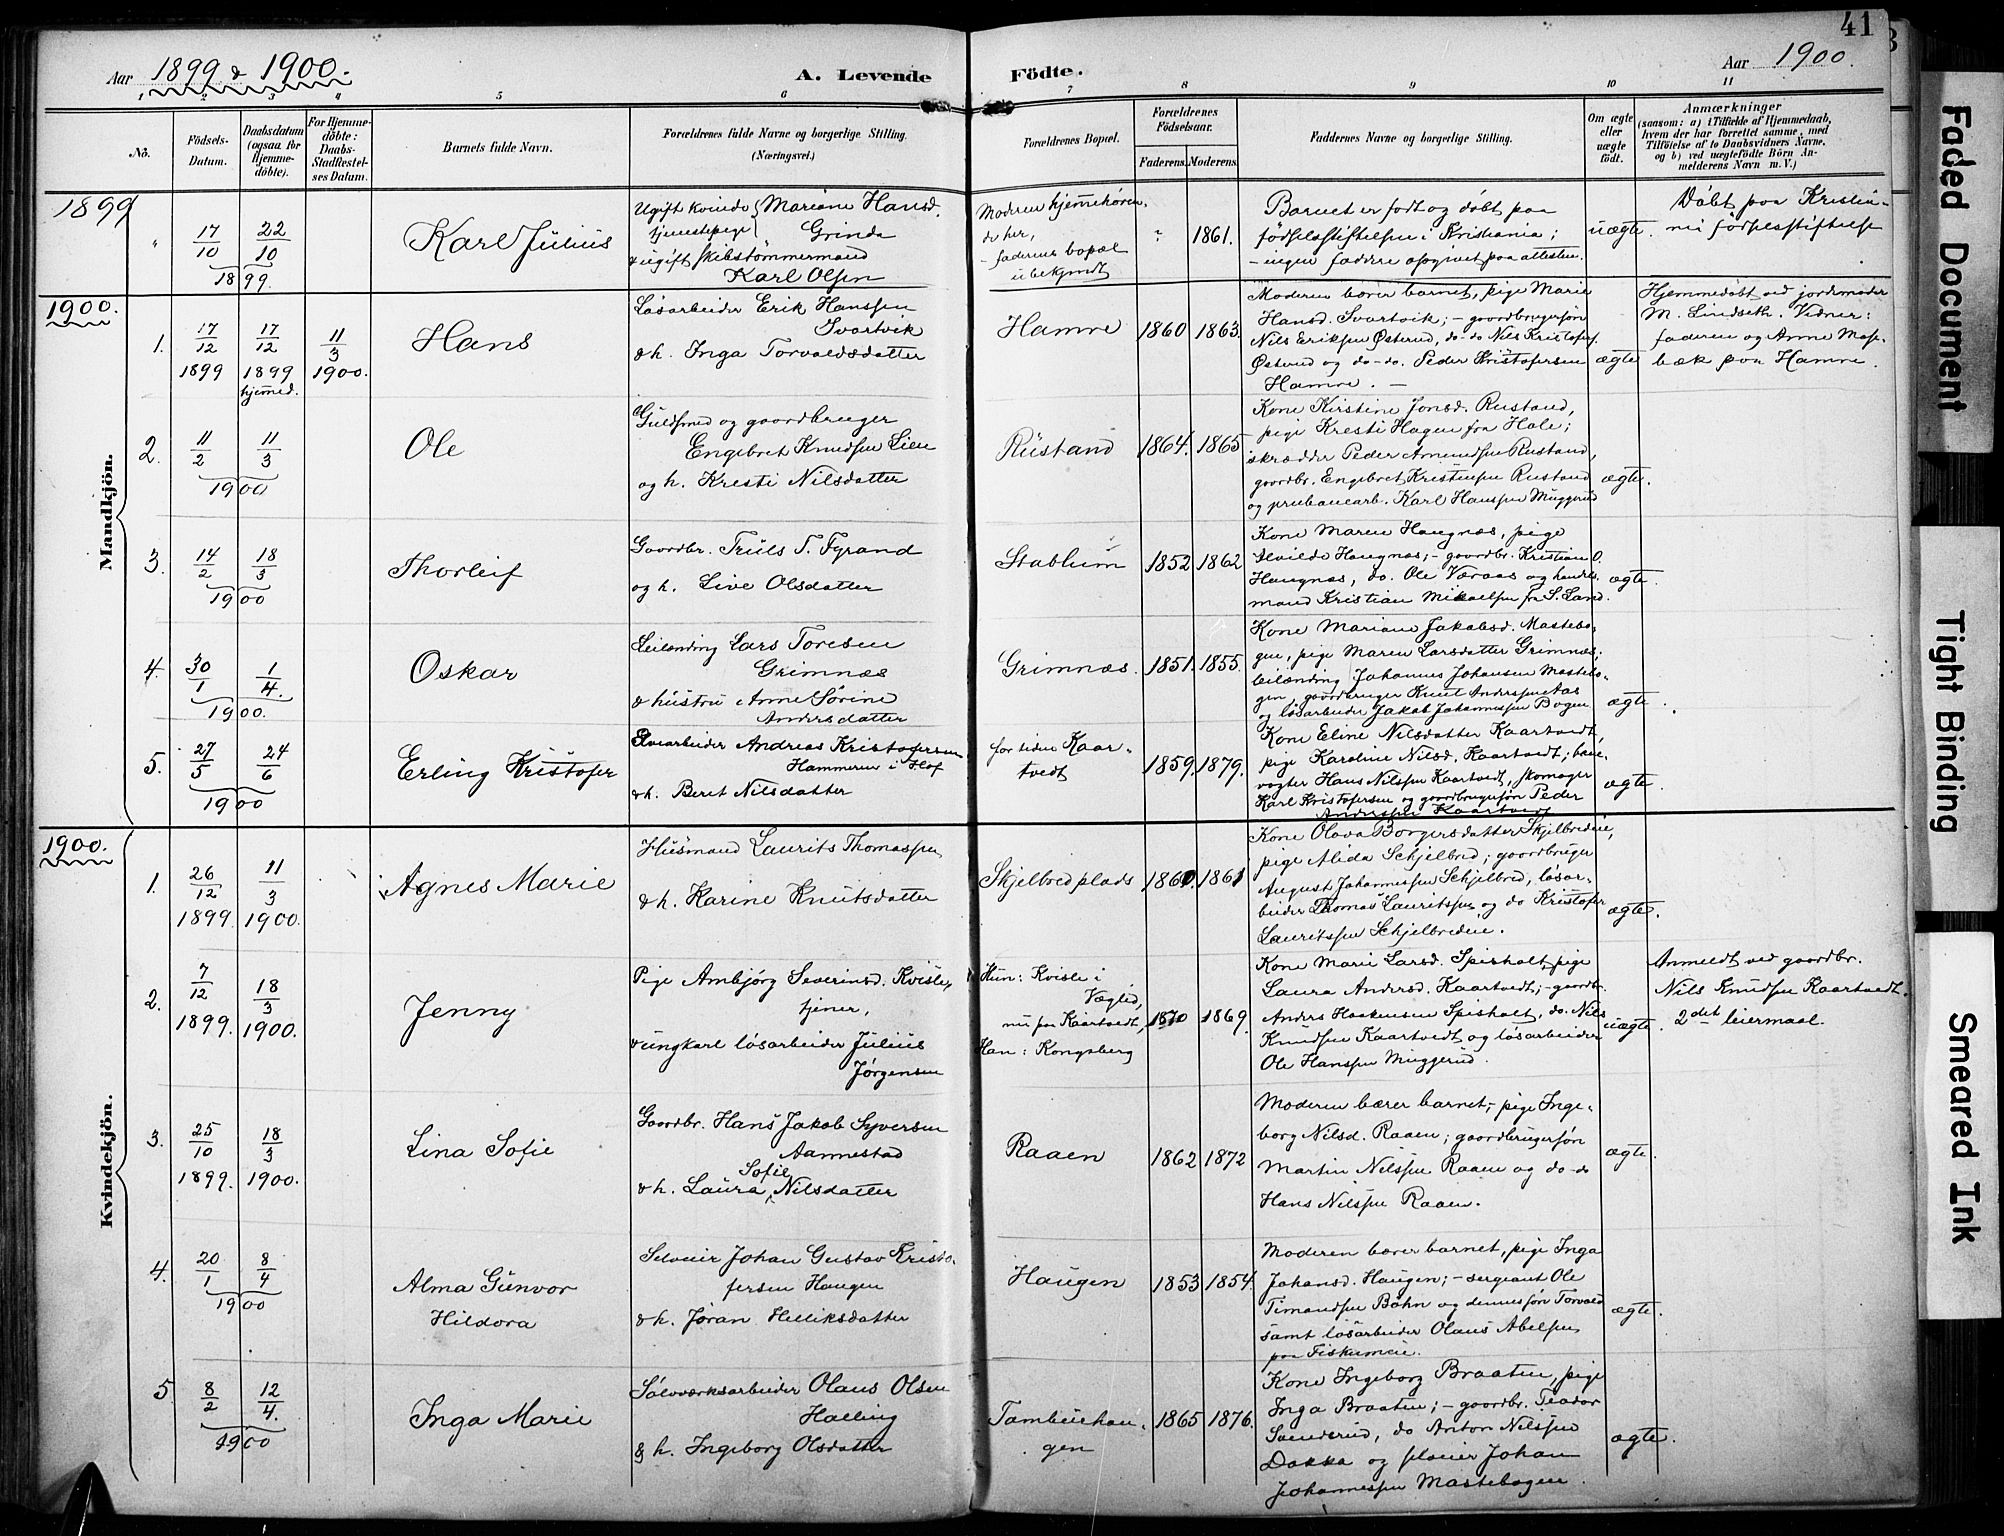 41
Aar 1899 & 1900.
A. Levende Födte.
Aar 1900.
1 2 3 4 5 6 7 8 9 10 11
No.
Födsels-
Datum.
Daabsdatum
(ogsaa for
Hjemme-
döbte).
For Hjemme-
döbte:
Daabs-
Stadfæstel-
ses Datum.
Barnets fulde Navn.
Forældrenes fulde Navne og borgerlige Stilling.
(Næringsvei.)
Forældrenes Bopæl.
Forældrenes
Födselsaar.
Faderens. Moderens.
Faddernes Navne og borgerlige Stilling.
Om ægte
eller
uægte
födt.
Anmærkninger
(saasom: a) i Tilfælde af Hjemmedaab,
hvem der har forrettet samme, med
Tilföielse af to Daabsvidners Navne,
og b) ved uægtefödte Börn An-
melderens Navn m. V.)
1899
"
17/10
22/10
1899
Karl Julius
Ugift kvinde Mariane Hansd.
tjenestepige Grinda
& ugift skibstømmermand
Karl Olsen
Moderen hjemmehøren-
de her,
- faderens bopæl
ubekjendt
?
1861.
Barnet er født og døbt paa
fødselsstiftelsen i Kristiania;
- ingen faddere opgivet paa attesten.
uægte.
Døbt paa Kristia-
nia fødselsstiftelse
Mandkjön.
1900.
1.
17/12
1899
17/12
1899
hjemmed.
11/3
1900.
Hans
Løsarbeider Erik Hanssen
Svartvik
& h. Inga Torvaldsdatter
Hamre
1860
1863.
Moderen bærer barnet, pige Marie
Hansd. Svartvik; - gaardbrugersøn
Nils Eriksen Østerud, do-do Nils Kristofers.
Østerud og do-do. Peder Kristofersen
Hamre. -
ægte
Hjemmedøbt ved jordemoder
M. Lindseth. Vidner:
faderen og Anne Mose-
bæk paa Hamre.
2.
11/2
11/3
1900
Ole
Guldsmed og gaardbruger
Engebret Knudsen Lien
og h. Kresti Nilsdatter
Rustand
1864.
1865
Kone Kirstine Jonsd. Rustand,
pige Kresti Hagen fra Hole;
skrædder Peder Amundsen Rustand,
gaardbr. Engebret Kristensen Rustand
og Karl Hanssen Muggerud
ægte.
3.
14/2
18/3
1900
Thorleif
Gaardbr. Truls T. Fyrand
og h. Live Olsdatter
Stablum
1852
1862
Kone Maren Haugnæs, pige
Alvilde Haugnæs; - gaardbr. Kristian O.
Haugnæs, do. Ole Væraas og handels-
mand Kristian Mikaelsen fra S. Land.
ægte.
4.
30/1
1/4.
1900.
Oskar
Leilænding Lars Toresen
Grimnæs
& hustru Anne Sørine
Andersdatter
Grimnæs.
1851.
1855.
Kone Mariane Jakobsd. Mastebo-
gen, pige Maren Larsdatter Grimnæs;
leilænding Johannes Johansen Mastebo-
gen, gaardbruger Knut Anderssen Aas
og løsarbeider Jakob Johannessen Bogen
ægte.
5.
27/5
24/6
1900
Erling Kristofer
Elvearbeider Andreas Kristofersen
Hammeren i Hof
& h. Beret Nilsdatter
for tiden Kaar-
tvedt
1859.
1879.
Kone Eline Nilsdatter Kaartvedt,
pige Karoline Nilsd. Kaartvedt; bane-
vogter Hans Nilssen Kaartvedt, skomager
Karl Kristofersen og gaardbrugersøn Peder
Anderssen Kaartvedt
ægte.
Kvindekjön.
1900.
1.
26/12
1899
11/3
1900.
Agnes Marie
Husmand Laurits Thomassen
& h. Karine Knutsdatter
Skjelbred plads
1860.
1861
Kone Olava Borgersdatter Skjelbredeie,
pige Alida Schjelbred; gaardbruger
August Johannessen Schjelbred, løsar-
beider Thomas Lauritssen og do Kristofer
Lauritssen Schjelbredeie.
ægte.
2.
7/12
1899.
18/3
1900.
Jenny
Pige Ambjørg Severinsd. Kvisle,
tjener,
& ungkarl løsarbeider Julius
Jørgensen
Hun: Kvisle i
Vægled,
nu paa Kaartvedt,
Han: Kongsberg
1870
1869.
Kone Marie Larsd. Spisholt, pige
Laura Andersd. Kaartvedt; - gaardbr.
Anders Haakensen Spisholt, do. Nils
Knudsen Kaartvedt og løsarbeider
Ole Hanssen Muggerud.
uægte.
Anmeldt ved gaardbr.
Nils Knudsen Kaartvedt.
2det leiermaal.
3.
25/10
1899.
18/3
1900.
Lina Sofie
Gaardbr. Hans Jakob Syversen
Aannestad
Sofie
& h. Laura Nilsdatter
Raaen
1862
1872
Moderen bærer barnet, - pige Inge-
borg Nilsd. Raaen; gaardbrugersøn
Martin Nilssen Raaen og do-do
Hans Nilssen Raaen.
ægte.
4.
20/1
8/4
1900
Alma Gunvor
Hildora
Selveier Johan Gustav Kristo-
fersen Haugen
& h. Jøran Helliksdatter
Haugen
1853
1854.
Moderen bærer barnet, pige Inga
Johansd. Haugen; - sergeant Ole
Timandsen Bøhn og dennes søn Torvald
samt løsarbeider Olaus Abelsen
paa Fiskumeie.
ægte.
5
8/2
12/4.
1900
Inga Marie
Sølvværksarbeider Olaus Olsen
Halling
& h. Ingeborg Olsdatter
Tambushau-
gen
1865
1876.
Kone Ingeborg Braaten, pige
Inga Braaten; - gaardbr. Teodor
Svendsrud, do Anton Nilssen
Dokka og pleier Johan
Johannessen Mastebogen.
ægte.
Faded Document
Tight Binding
Smeared Ink